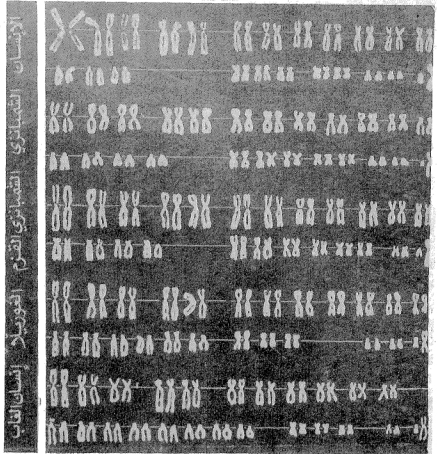 الإنسان
الشمبانزي
الشمبانزي القزم
الغوريلا
إنسان الغاب